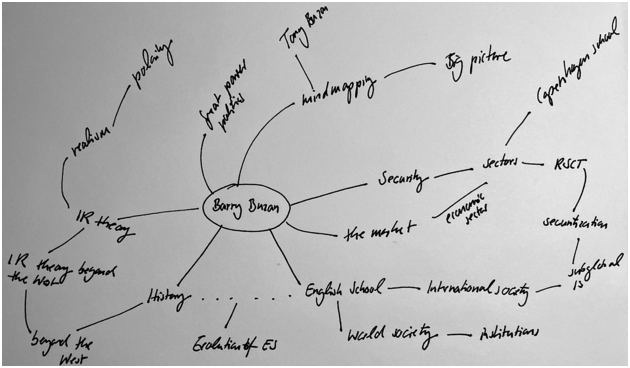 Tony Buzan
polarity
great power
politics
mindmapping
Big picture
Copenhagen school
realism
Security
sectors
RSCT
IR theory
Barry Buzan
the market
economic
sector
securitization
IR theory beyond
the West
History
English School
International society
subglobal
IS
beyond the
West
Evolution of ES
World society
Institutions